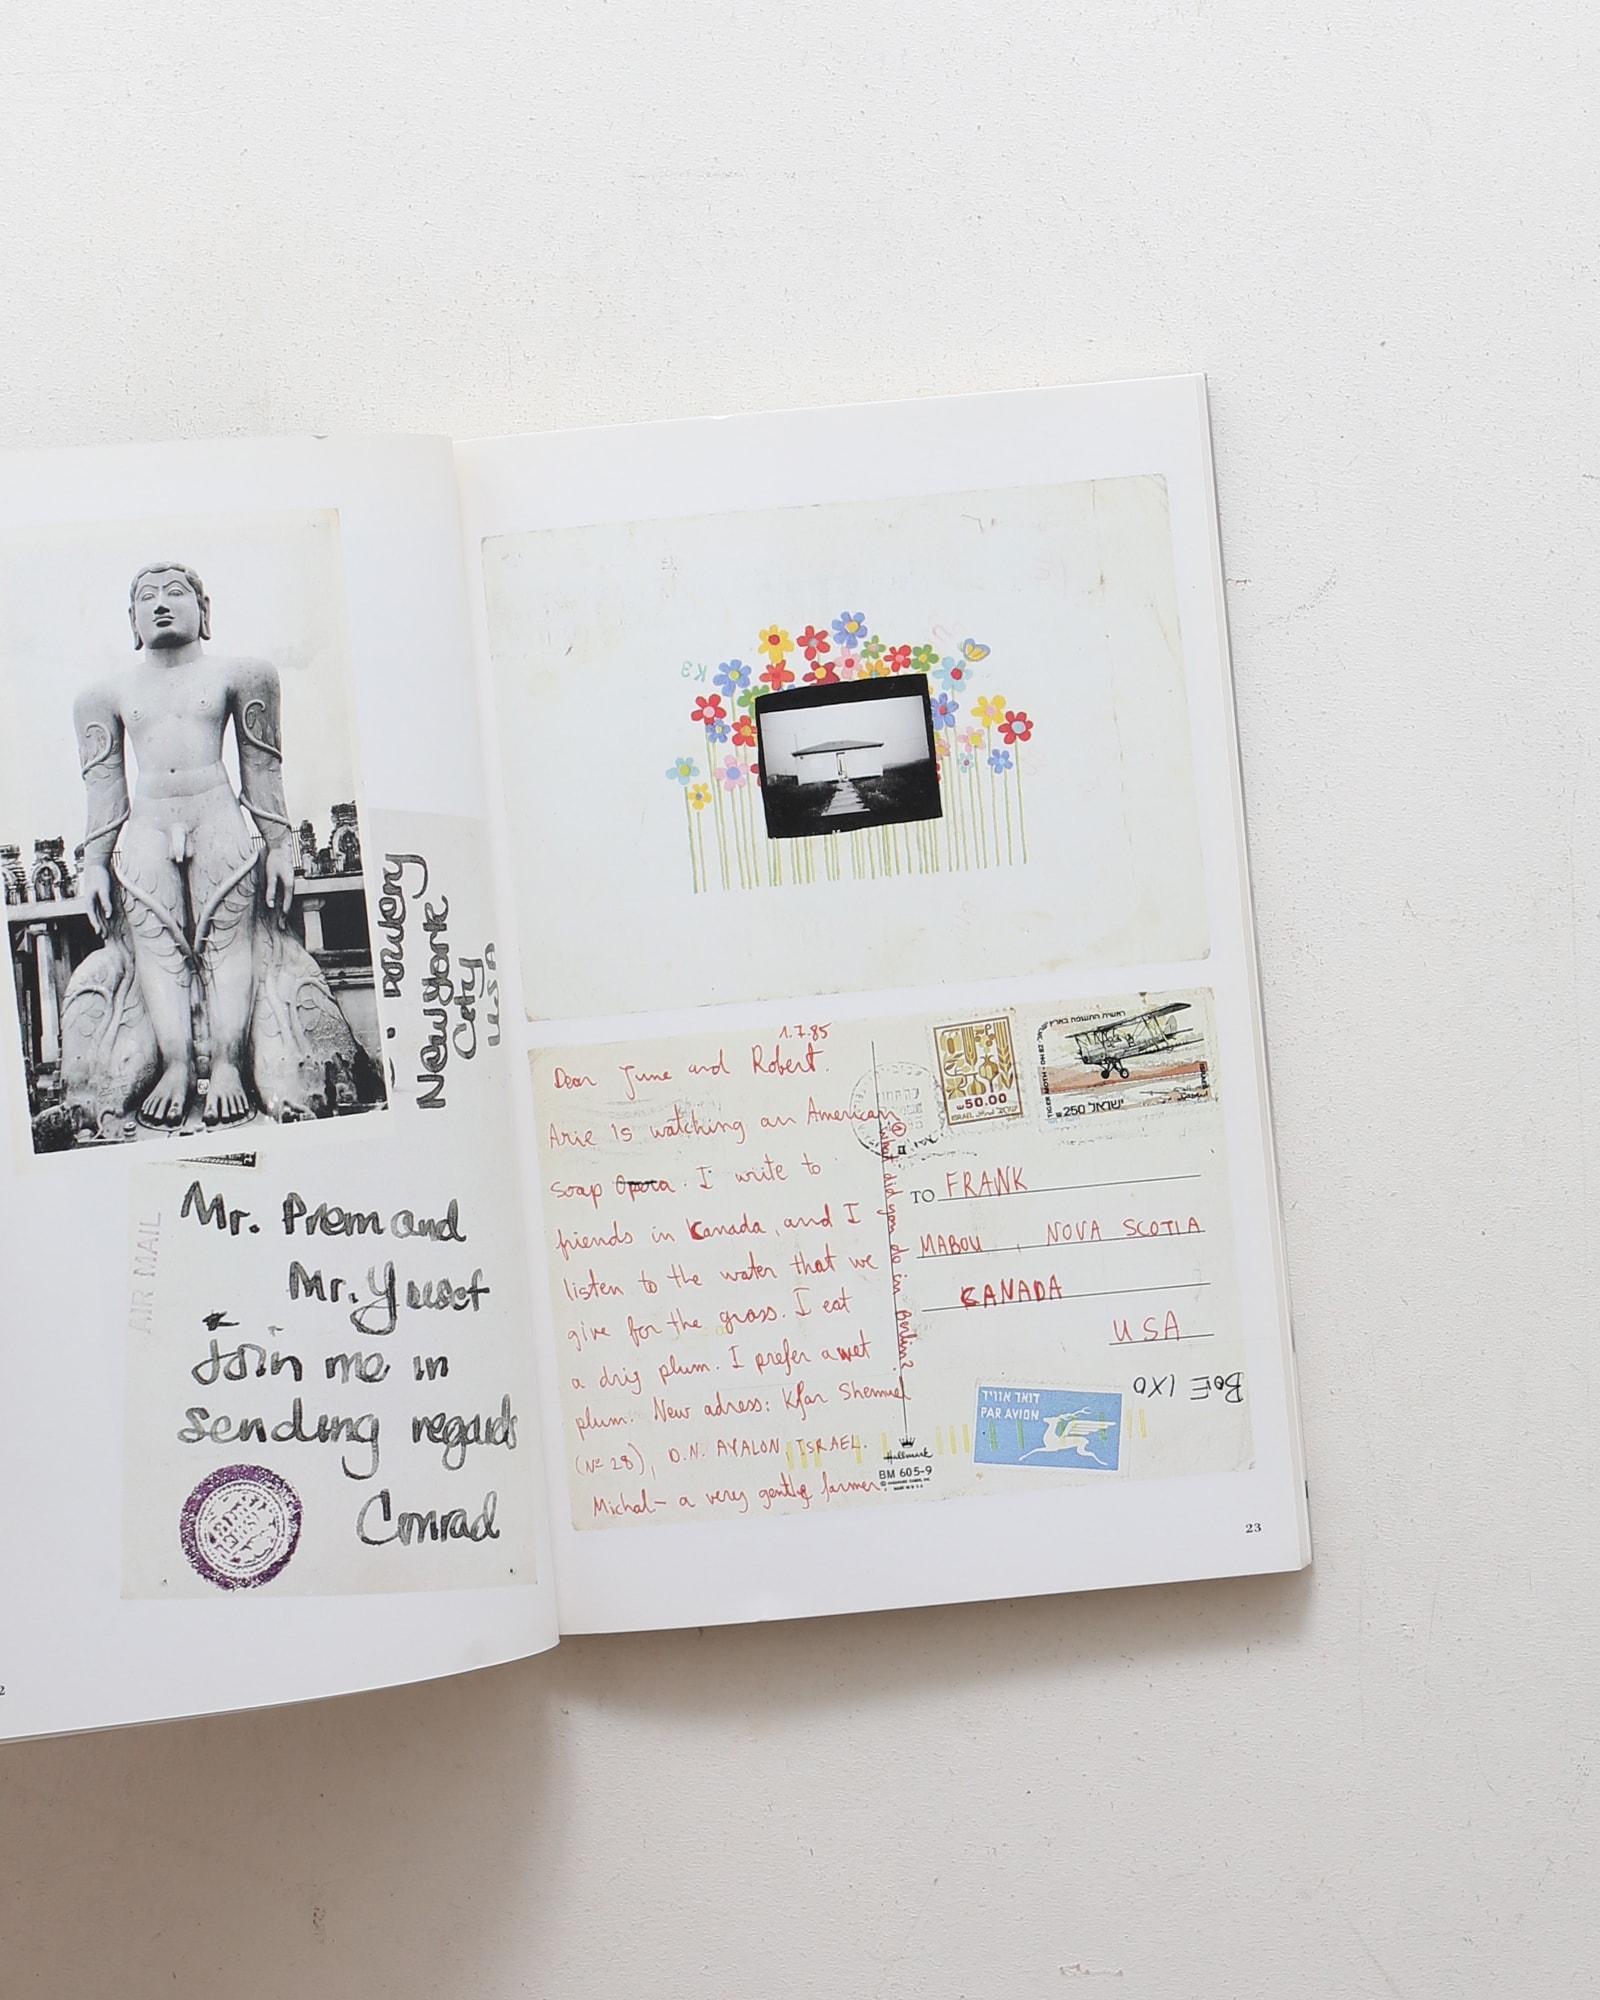 New York
City
USA
AIR MAIL
Mr. Prem and
Mr. Yusef
Join me in
sending regards
Conrad
2
K3
1.7.85
Dear June and Robert.
Arie is watching an American
soap Opera. I write to
friends in Canada, and I
listen to the water that we
give for the grass. I eat
a driy plum. I prefer a wet
plum. New adress: Kfar Shemuel
(No 28), D.N. AYALON, ISRAEL.
Michal - a very gentle farmer.
what did you do in Berlin?
50.00
ISRAEL ישראל
ראשית התעופה בארץ
TIGER MOTH
250 ישראל
TO FRANK
MABOU, NOVA SCOTIA
CANADA
USA
BOE 1X0
דואר אוויר
PAR AVION
Hallmark
BM 605-9
23